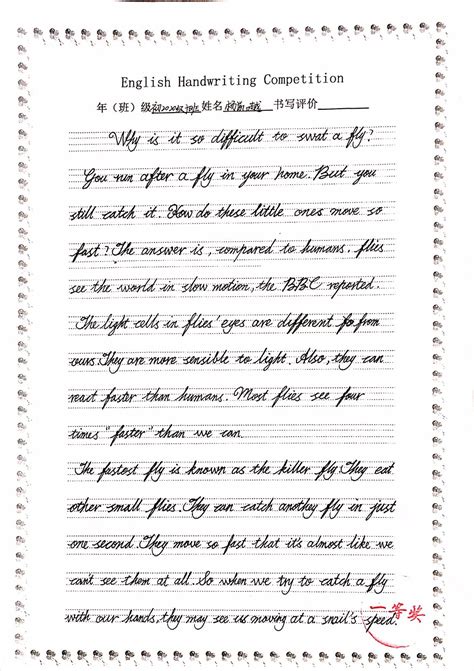 English Handwriting Competition
年（班）级初2020级 班姓名 书写评价
Why is it so difficult to swat a fly?
You run after a fly in your home. But you
still catch it. How do these little ones move so
fast? The answer is, compared to humans. flies
see the world in slow motion, the BBC reported.
The light cells in flies' eyes are different fo from
ours. They are more sensible to light. Also, they can
react faster than humans. Most flies see four
times "faster" than we can.
The fastest fly is known as the killer fly. They eat
other small flies. They can catch another fly in just
one second. They move so fast that it's almost like we
can't see them at all. So when we try to catch a fly
with our hands, they may see us moving at a snail's speed.
一等奖